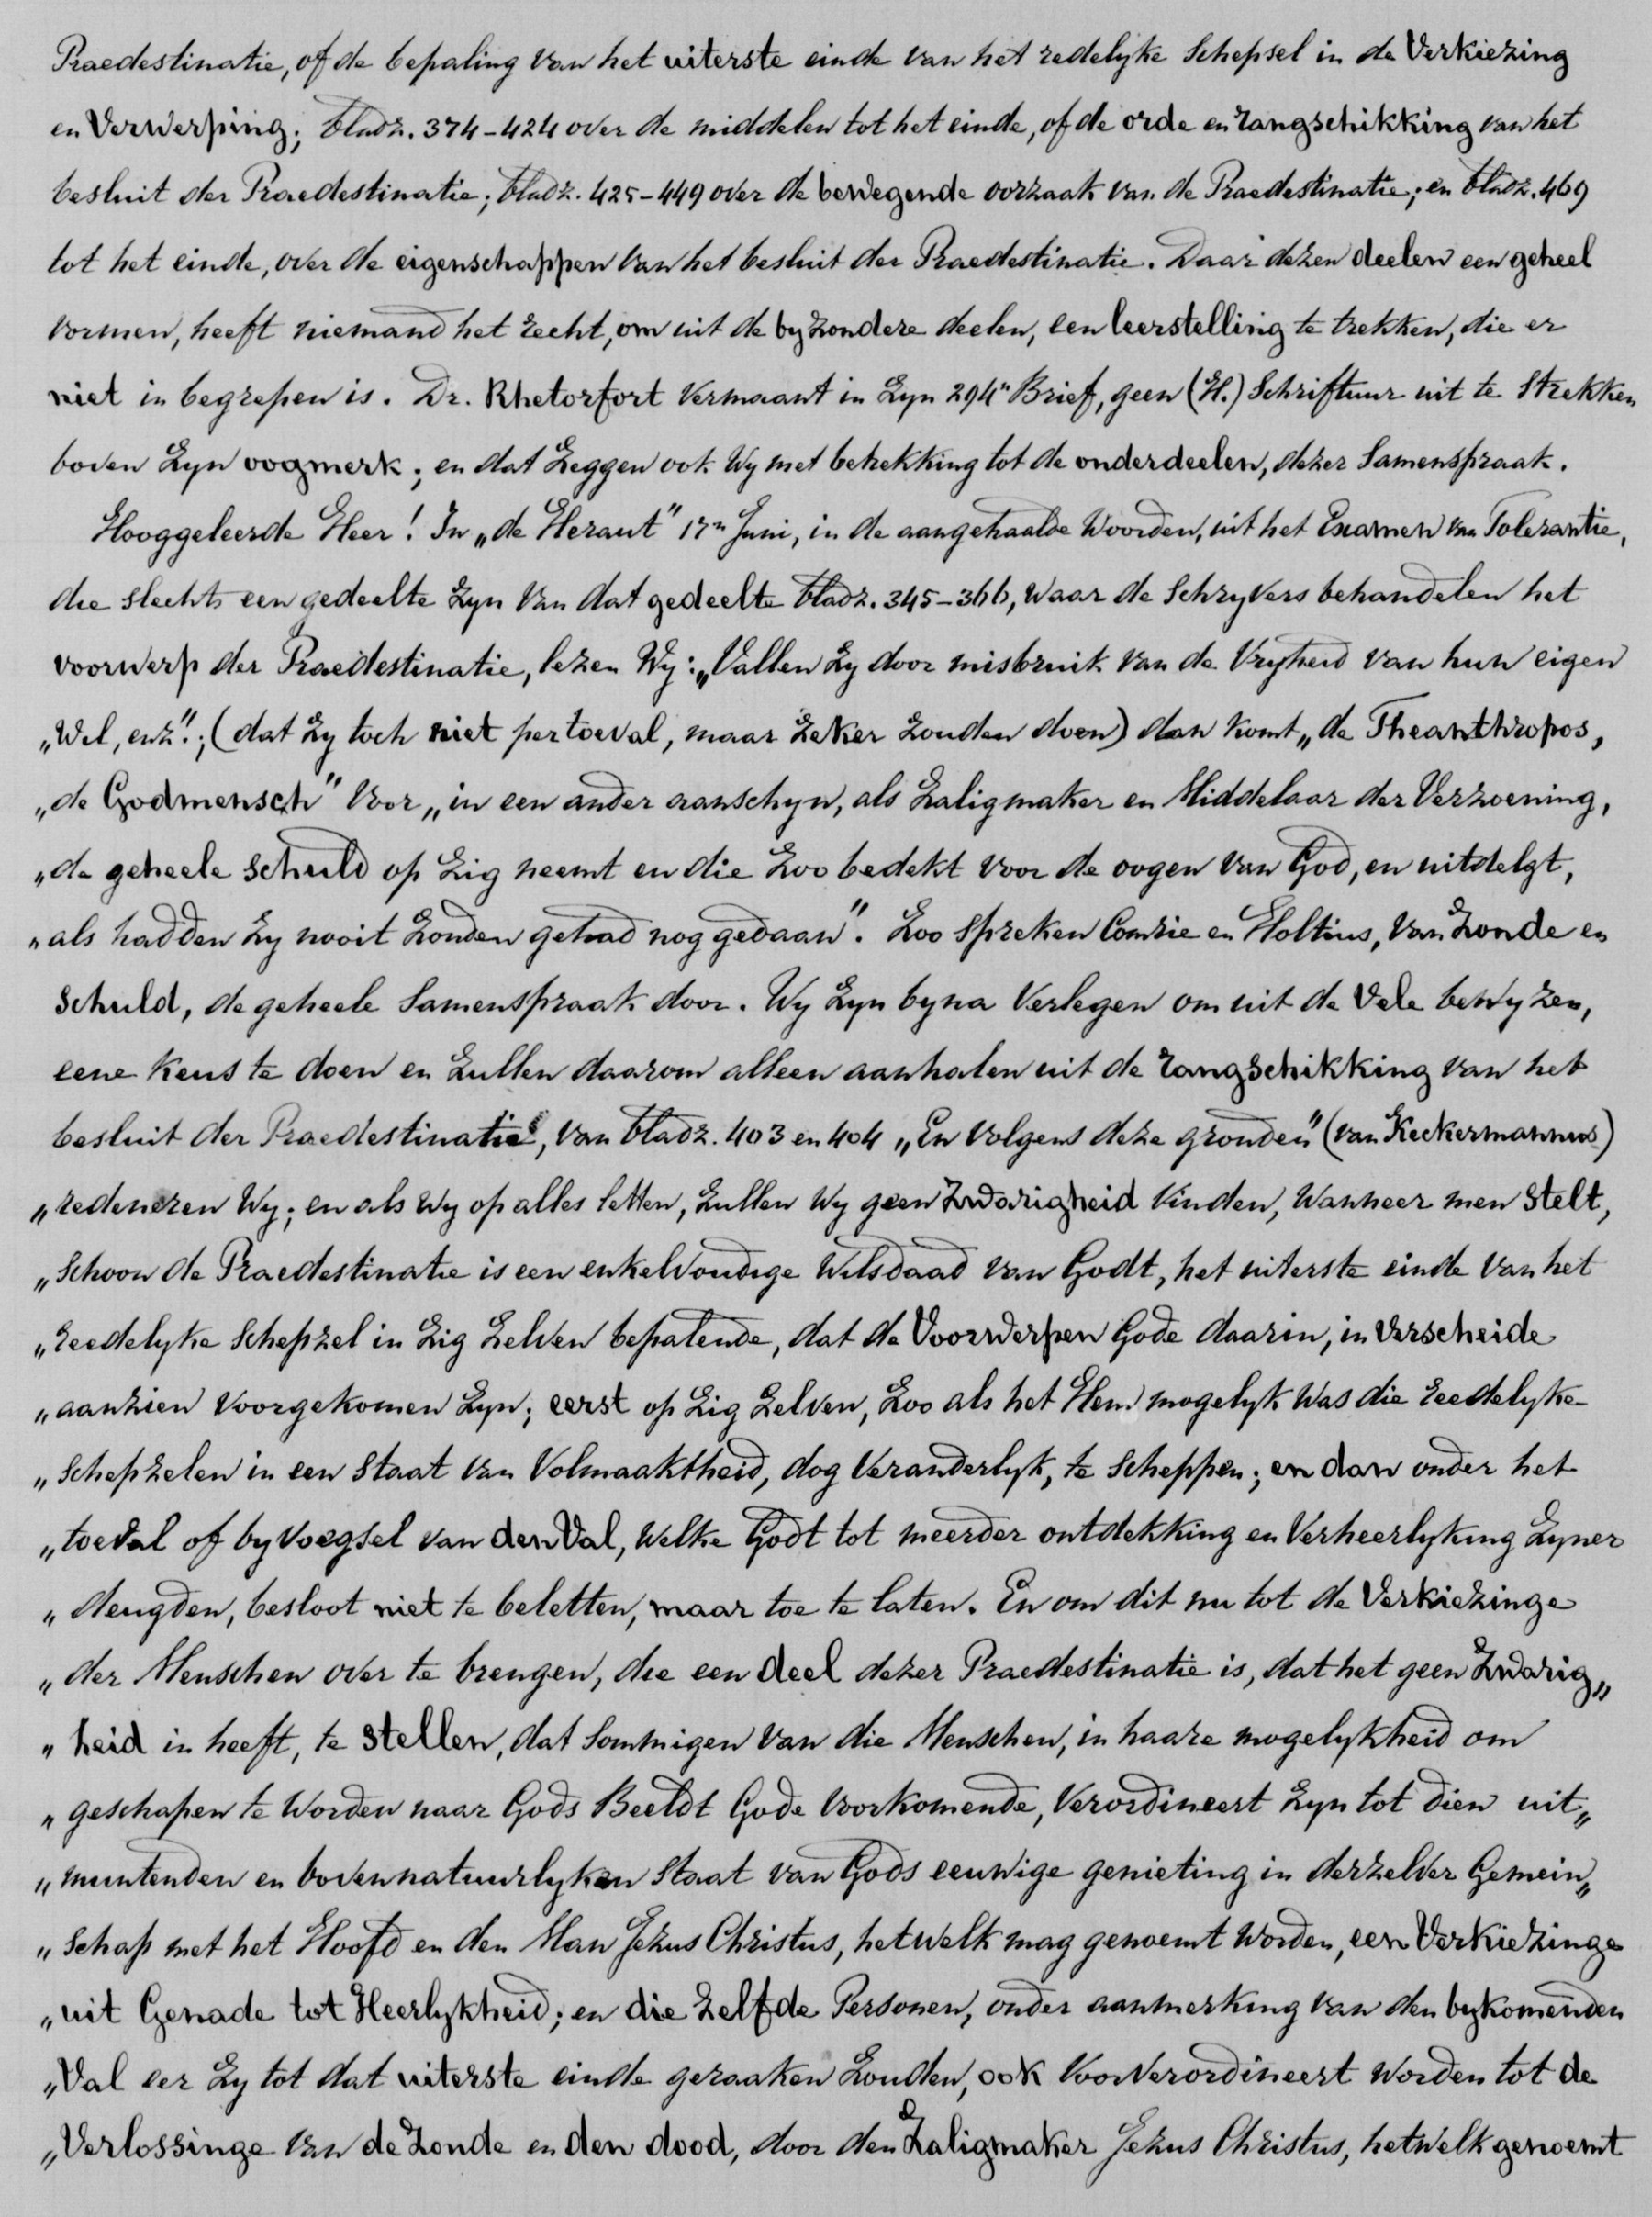 Praedestinatie, of de bepaling van het uiterste einde van het redelyke Schepsel in de Verkiezing
en Verwerping; bladz. 374-424 over de middelen tot het einde, of de orde en rangschikking van het
besluit der Praedestinatie; bladz. 425-449 over de bewegende oorzaak van de Praedestinatie; en bladz. 469
tot het einde, over de eigenschappen van het besluit der Praedestinatie. Daar dezen deelen een geheel
vormen, heeft niemand het recht, om uit de byzondere deelen, een leerstelling te trekken, die er
niet in begrepen is. Dr. Rhetorfort vermaant in Zyn 294n Brief, geen (H.) Schriftuur uit te Strekken
boven Zyn oogmerk; en dat Zeggen ook Wy met betrekking tot de onderdeelen, dezer Samenspraak.
Hooggeleerde Heer! In „de Heraut" 17n Juni, in de aangehaalde Woorden, uit het Examen van Tolerantie,
die slechts een gedeelte Zyn Van dat gedeelte bladz. 345-366, Waar de Schryvers behandelen het
voorwerp der Praedestinatie, lezen Wy: „Vallen Zy door misbruik van de Vryheid van hun eigen
„Wil, enz."; (dat Zy toch niet per toeval, maar Zeker Zouden doen) dan komt „de Theanthropos,
„de Godmensch" voor „in een ander aanschyn, als Zaligmaker en Middelaar der Verzoening,
„de geheele schuld op Zig neemt en die Zoo bedekt voor de oogen van God, en uitdelgt,
„als hadden Zy nooit Zonden gehad nog gedaan". Zoo Spreken Comrie en Holtius, van Zonde en
Schuld, de geheele Samenspraak door. Wy Zyn byna Verlegen om uit de Vele bewyzen,
eene keus te doen en Zullen daarom alleen aanhalen uit de rangschikking van het
besluit der Praedestinatie, van bladz. 403 en 404 „En volgens deze gronden" (van Keckermannus)
„redeneren Wy; en als Wy op alles letten, Zullen Wy geen Zwarigheid vinden, Wanneer men Stelt,
„Schoon de Praedestinatie is een enkelvoudige Wilsdaad van Godt, het uiterste einde van het
„reedelyke Schepzel in Zig Zelven bepalende, dat de Voorwerpen Gode daarin, in Verscheide
„aanzien voorgekomen Zyn; eerst op Zig Zelven, Zoo als het Hem mogelyk Was die reedelyke
„Schepzelen in een Staat van Volmaaktheid, dog Veranderlyk, te Scheppen; en dan onder het
„toeval of byvoegsel van den Val, Welke Godt tot meerder ontdekking en Verheerlyking Zyner
„deugden, besloot niet te beletten, maar toe te laten. En om dit nu tot de Verkiezinge
„der Menschen over te brengen, die een deel dezer Praedestinatie is, dat het geen Zwarig„
„heid in heeft, te Stellen, dat Sommigen van die Menschen, in haare mogelykheid om
„geschapen te Worden naar Gods Beeldt Gode voorkomende, Verordineert Zyn tot dien uit„
„muntenden en bovennatuurlyken Staat van Gods eeuwige genieting in derzelver Gemein„
„Schap met het Hoofd en den Man Jezus Christus, hetwelk mag genoemt Worden, een Verkiezinge
„uit Genade tot Heerlykheid; en die Zelfde Personen, onder aanmerking van den bykomenden
„Val eer Zy tot dat uiterste einde geraaken Zouden, ook voorverordineert Worden tot de
„Verlossinge van de Zonde en den dood, door den Zaligmaker Jezus Christus, hetwelk genoemt